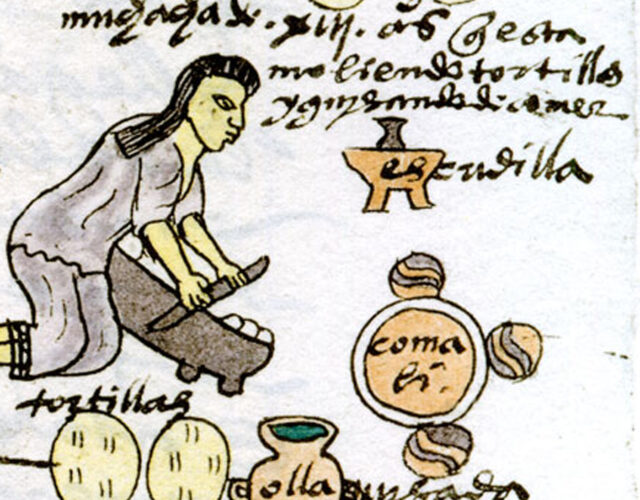 muchacha de .xiij. aos q̃ esta
moliendo tortillas
y guisando de comer
escudilla
coma
li.
tortillas
olla
guisado